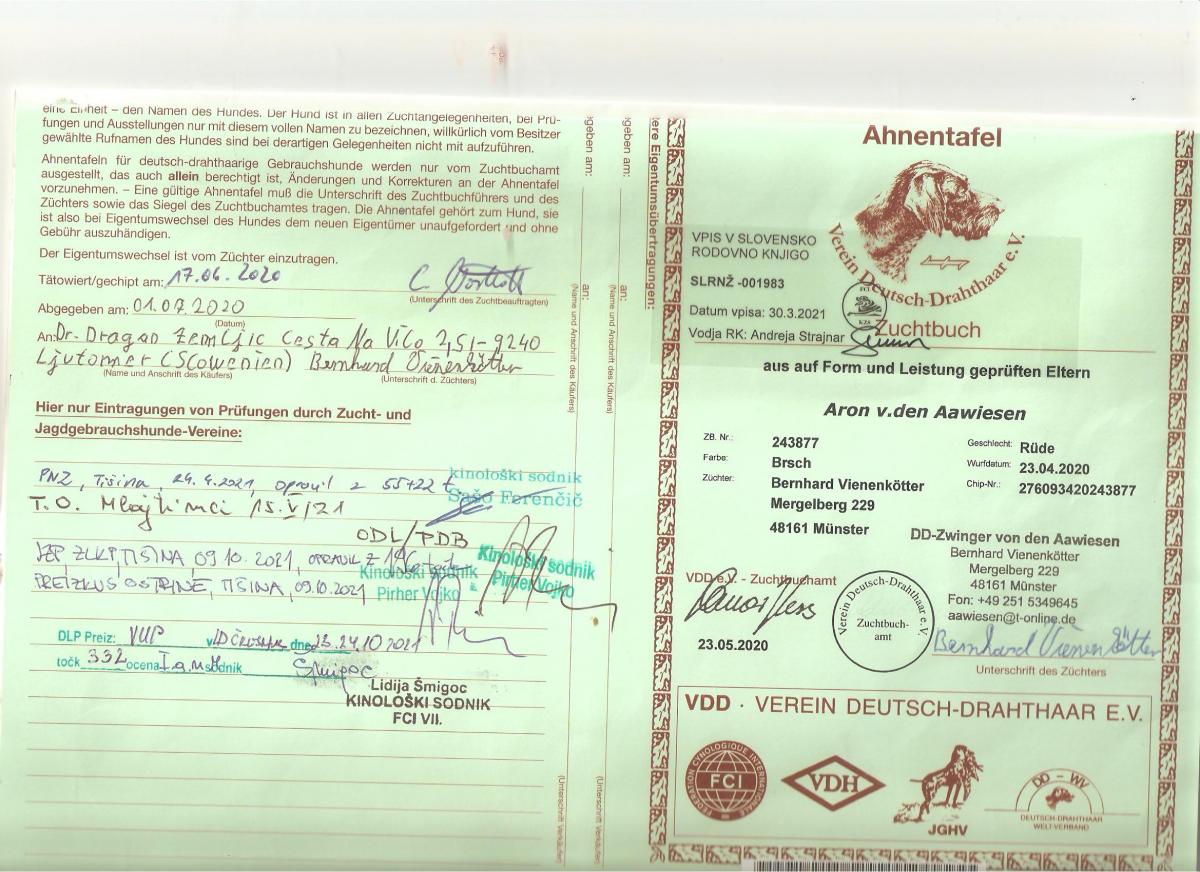 eine Einheit – den Namen des Hundes. Der Hund ist in allen Zuchtangelegenheiten, bei Prü-
fungen und Ausstellungen nur mit diesem vollen Namen zu bezeichnen, willkürlich vom Besitzer
gewählte Rufnamen des Hundes sind bei derartigen Gelegenheiten nicht mit aufzuführen.
Ahnentafeln für deutsch-drahthaarige Gebrauchshunde werden nur vom Zuchtbuchamt
ausgestellt, das auch allein berechtigt ist, Änderungen und Korrekturen an der Ahnentafel
vorzunehmen. – Eine gültige Ahnentafel muß die Unterschrift des Zuchtbuchführers und des
Züchters sowie das Siegel des Zuchtbuchamtes tragen. Die Ahnentafel gehört zum Hund, sie
ist also bei Eigentumswechsel des Hundes dem neuen Eigentümer unaufgefordert und ohne
Gebühr auszuhändigen.
Der Eigentumswechsel ist vom Züchter einzutragen.
Tätowiert/gechipt am: 17.06.2020
(Unterschrift des Zuchtbeauftragten)
Abgegeben am: 01.07.2020
(Datum)
An: Dr. Dragan Zemljic Cesta Na Vilo 2, 51-9240
Ljutomer (Slowenien) Bernhard Vienenkötter
(Name und Anschrift des Käufers) (Unterschrift d. Züchters)
Hier nur Eintragungen von Prüfungen durch Zucht- und
Jagdgebrauchshunde-Vereine:
PNZ, Tišina, 24.4.2021, opravil z 55+22 t
kinološki sodnik
Sašo Ferenčič
T.O. Mlajtinci 15.V/21
ODL/PDB
TIŠINA, 09.10.2021, OPRAVIL Z
Kinološki sodnik
Pirher Vojko
PREIZKUS OSTRINE, TIŠINA, 09.10.2021
Kinološki sodnik
Pirher Vojko
DLP Preiz: VUP v dne 23.24.10 2021
točk 332 ocena I sodnik Šmigoc
Lidija Šmigoc
KINOLOŠKI SODNIK
FCI VII.
geben am:
an:
(Name und Anschrift des Käufers)
(Unterschrift Verkäufer)
geben am:
an:
(Name und Anschrift des Käufers)
(Unterschrift Verkäufer)
tere Eigentumsübertragungen:
Ahnentafel
Verein Deutsch-Drahthaar e.V.
Zuchtbuch
VPIS V SLOVENSKO
RODOVNO KNJIGO
SLRNŽ -001983
Datum vpisa: 30.3.2021
Vodja RK: Andreja Strajnar
aus auf Form und Leistung geprüften Eltern
Aron v.den Aawiesen
ZB. Nr.: 243877 Geschlecht: Rüde
Farbe: Brsch Wurfdatum: 23.04.2020
Züchter: Bernhard Vienenkötter Chip-Nr.: 276093420243877
Mergelberg 229
48161 Münster
DD-Zwinger von den Aawiesen
Bernhard Vienenkötter
Mergelberg 229
48161 Münster
Fon: +49 251 5349645
aawiesen@t-online.de
VDD e.V. - Zuchtbuchamt
23.05.2020
Verein Deutsch-Drahthaar e.V.
Zuchtbuch-
amt
Bernhard Vienenkötter
Unterschrift des Züchters
VDD · VEREIN DEUTSCH-DRAHTHAAR E.V.
FEDERATION CYNOLOGIQUE INTERNATIONALE
FCI
VDH
JGHV
DD – WV
DEUTSCH-DRAHTHAAR
WELT-VERBAND